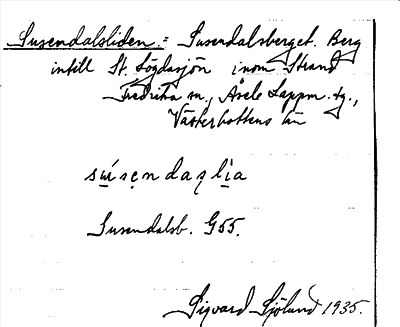 Susendalsliden. = Susendalsberget. Berg
intill St. Lögdasjön inom Strand
Fredrika sn., Åsele Lappm. tg.,
Västerbottens län
Susendalsb. G55.
Sigvard Sjölund 1935.